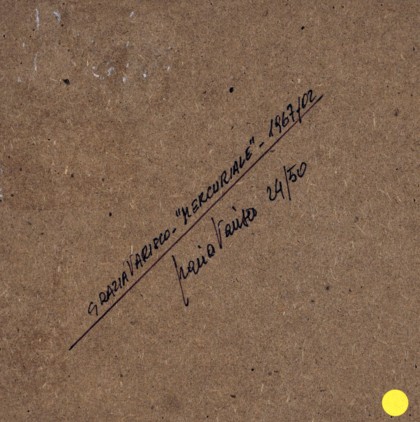 GRAZIA VARISCO - "MERCURIALE" - 1967/02
Grazia Varisco 24/50